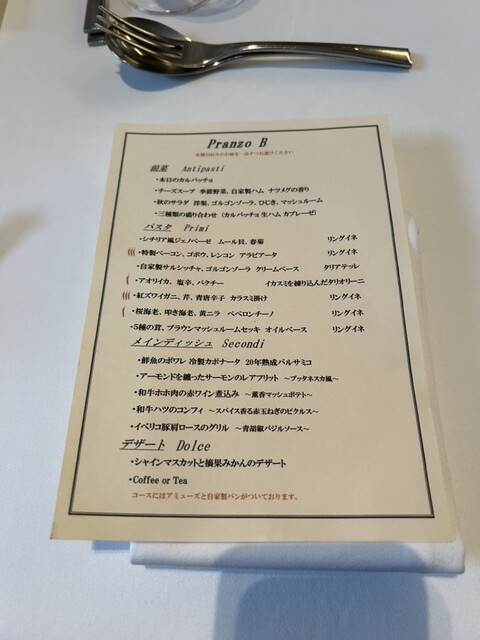 Pranzo B
各種お好みのお味を一品ずつお選びください
前菜 Antipasti
・本日のカルパッチョ
・チーズスープ 季節野菜、自家製ハム ナツメグの香り
・秋のサラダ 洋梨、ゴルゴンゾーラ、ひじき、マッシュルーム
・三種類の盛り合わせ (カルパッチョ 生ハム カプレーゼ)
パスタ Primi
・シチリア風ジェノベーゼ ムール貝、春菊 リングイネ
・特製ベーコン、ゴボウ、レンコン アラビアータ リングイネ
・自家製サルシッチャ、ゴルゴンゾーラ クリームベース タリアテッレ
・アオリイカ、塩辛、パクチー イカスミを練り込んだタリオリーニ
・紅ズワイガニ、芹、青唐辛子 カラスミ掛け リングイネ
・桜海老、叩き海老、黄ニラ ペペロンチーノ リングイネ
・5種の茸、ブラウンマッシュルームセッキ オイルベース リングイネ
メインディッシュ Secondi
・鮮魚のポワレ 冷製カポナータ 20年熟成バルサミコ
・アーモンドを纏ったサーモンのレアフリット ～プッタネスカ風～
・和牛ホホ肉の赤ワイン煮込み ～薫香マッシュポテト～
・和牛ハツのコンフィ ～スパイス香る赤玉ねぎのピクルス～
・イベリコ豚肩ロースのグリル ～青胡椒バジルソース～
デザート Dolce
・シャインマスカットと摘果みかんのデザート
・Coffee or Tea
コースにはアミューズと自家製パンがついております。